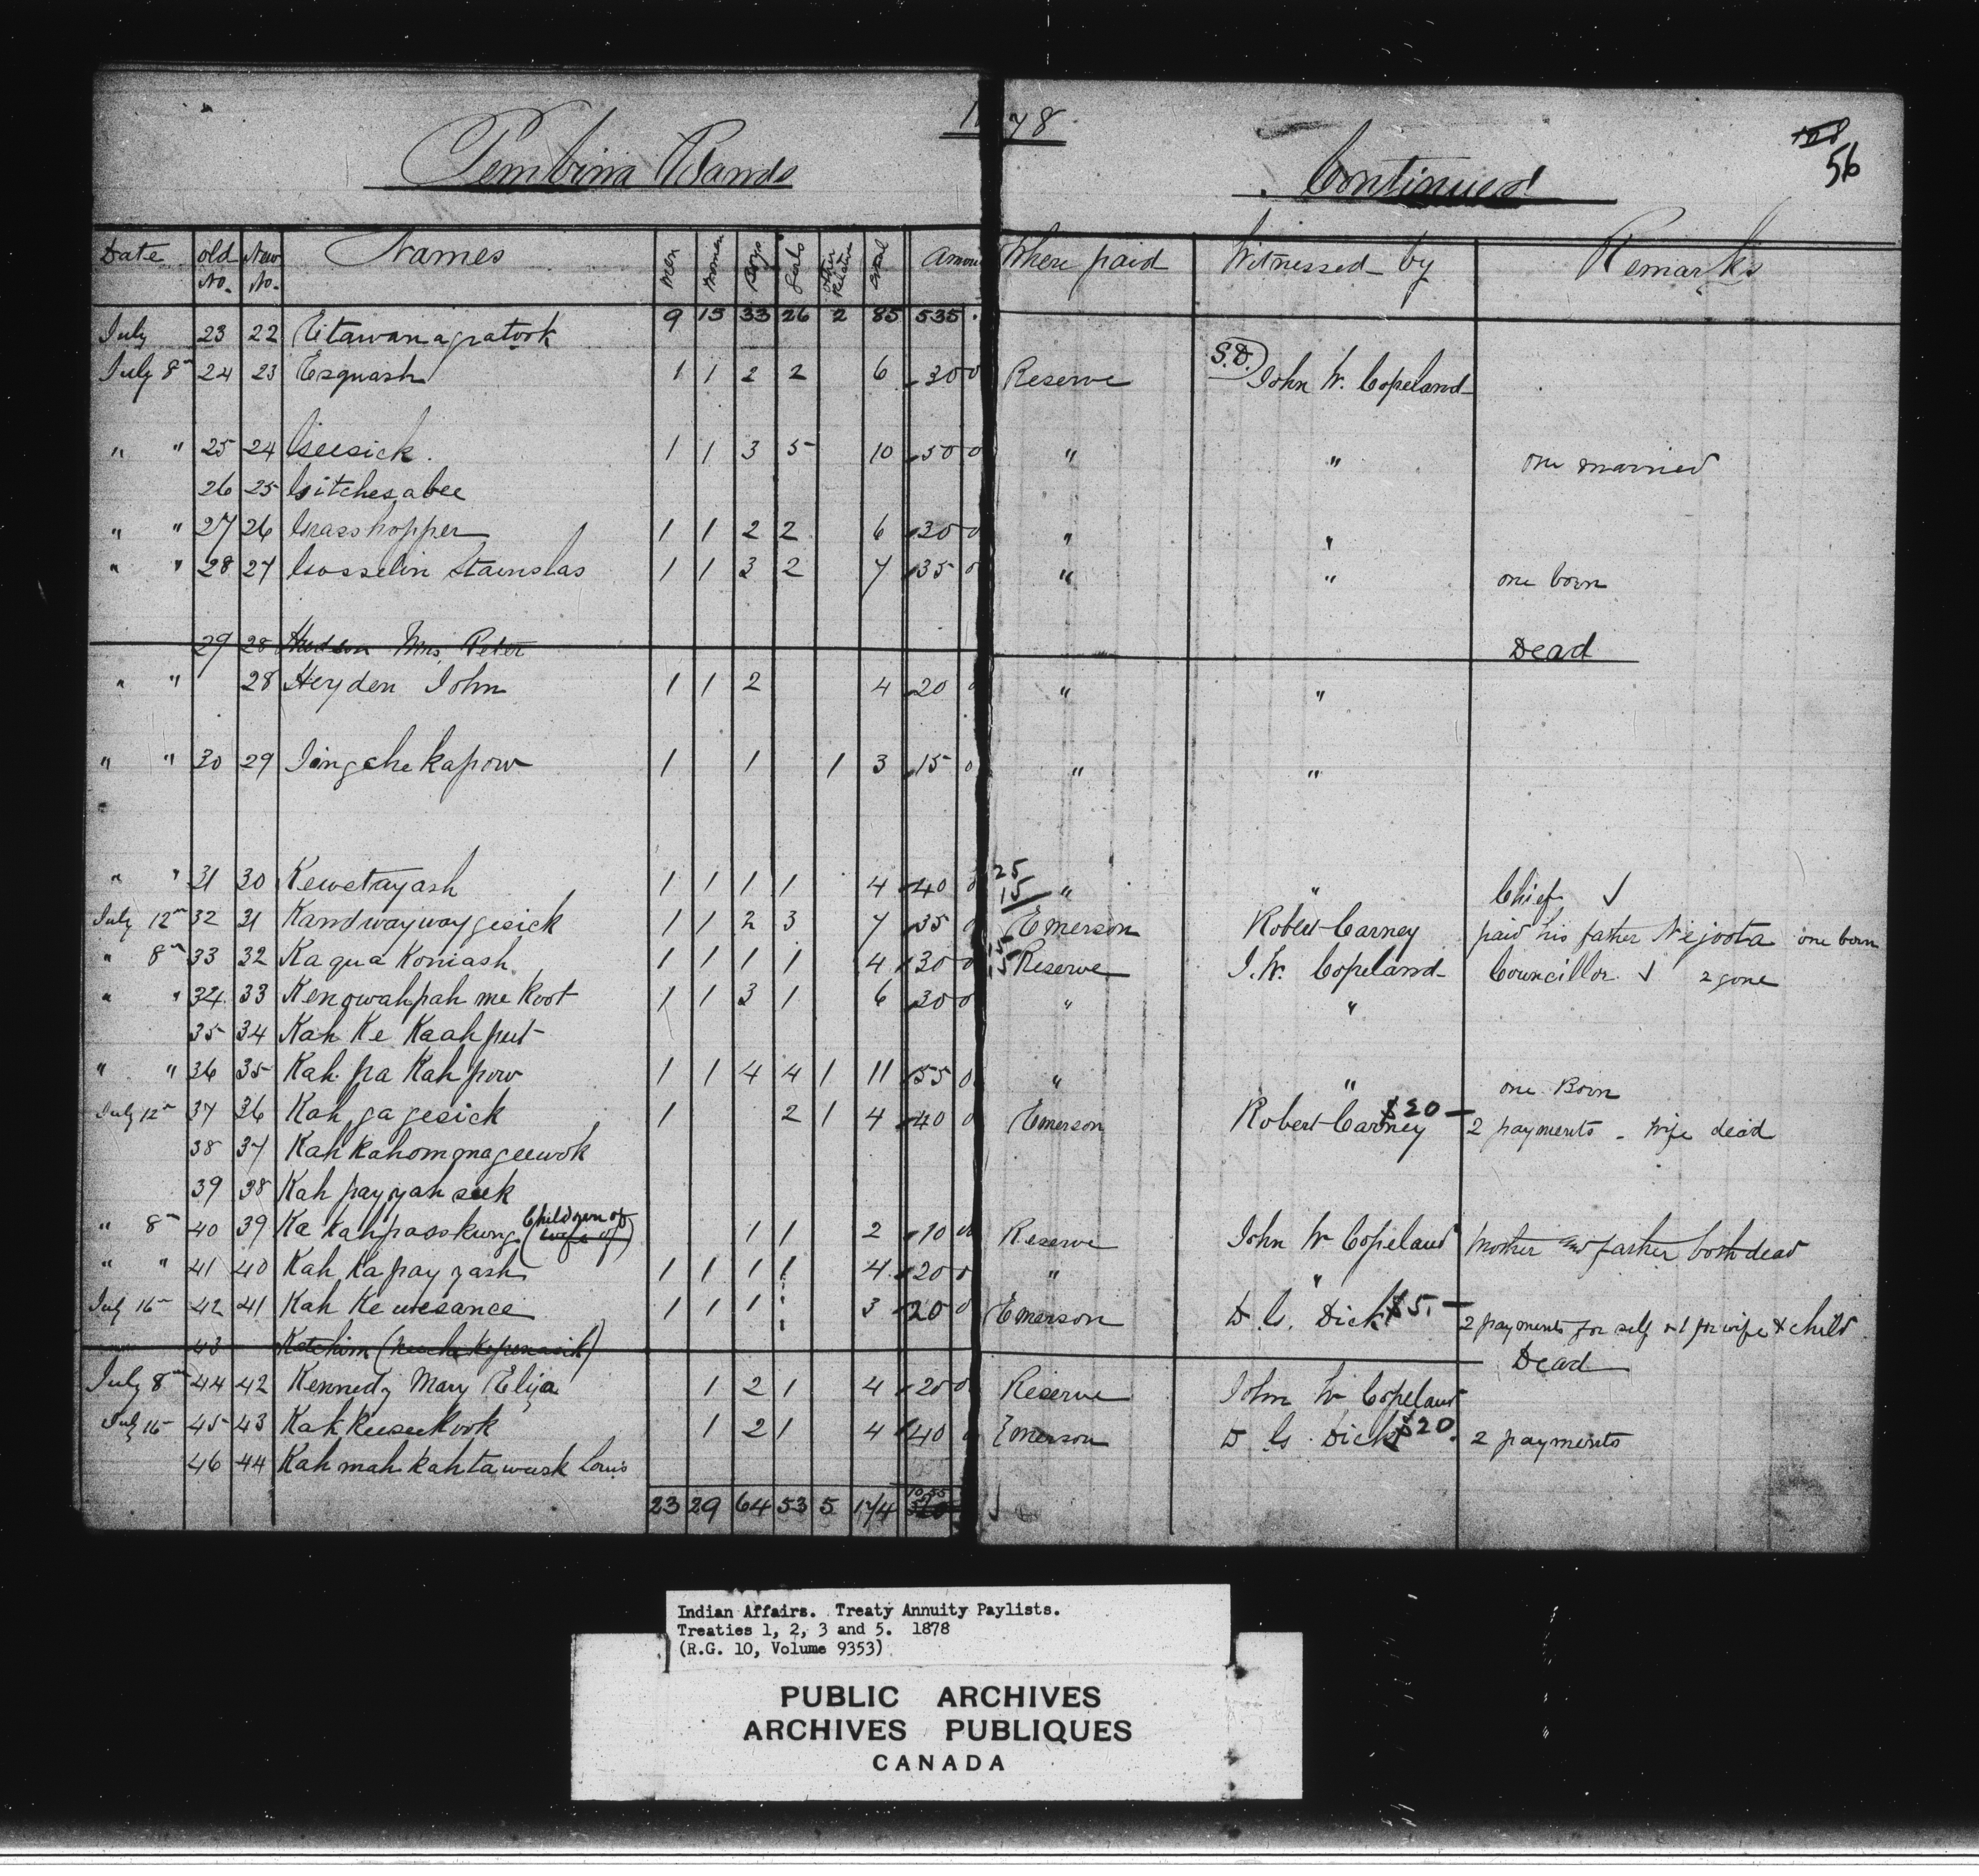 1878
Pembina Bands Continued 56
Date old No. New No. Names Men Women Boys Girls Other Relative Total Amount Where paid Witnessed by Remarks
9 15 33 26 2 85 535
July 23 22 Etawanagratook
July 8th 24 23 Esquash 1 1 2 2 6 30 0 Reserve S.D. John W. Copeland
" " 25 24 Geesick. 1 1 3 5 10 50 0 " " one married
26 25 Gitchesabee
" " 27 26 Grasshopper 1 1 2 2 6 30 0 " "
" " 28 27 Gosselin Stainslas 1 1 3 2 7 35 0 " " one born
29 28 Hudson Mrs Peter Dead
" " 28 Heyden John 1 1 2 4 20 0 " "
" " 30 29 Iingchekapow 1 1 1 3 15 0 " "
" " 31 30 Kewetayash 1 1 1 1 4 40 0 25 15 " " Chief ✓
July 12th 32 31 Kandwaywaygesick 1 1 2 3 7 35 0 Emerson Robert Carney paid his father Nejoota one born
" 8th 33 32 Kaqua Koniash 1 1 1 1 4 30 0 15 15 Reserve J. W. Copeland Councillor ✓ 2 gone
" " 34 33 Kenowahpah me koot 1 1 3 1 6 30 0 " "
35 34 Kah Ke Kaah put
" " 36 35 Kah pa Kah pow 1 1 4 4 1 11 55 0 " " one Born
July 12th 37 36 Kah ga gesick 1 2 1 4 40 0 Emerson Robert Carney $20 — 2 payments - wife dead
38 37 Kahkahomgnageewok
39 38 Kah payyah seek
" 8th 40 39 Ka kahpasskung (Children of wife of) 1 1 2 10 00 Reserve John W Copeland Mother and father both dead
" " 41 40 Kah Ka pay yash 1 1 1 1 4 20 0 " "
July 16th 42 41 Kah Ke wesance 1 1 1 3 20 0 Emerson D. G. Dick $5. — 2 payments for self & 1 for wife & child
43 Ketchim Dead
July 8th 44 42 Kennedy Mary Eliza 1 2 1 4 20 0 Reserve John W Copeland
July 16 45 43 Kahkeeseekook 1 2 1 4 40 0 Emerson D G. Dick $20. 2 payments
46 44 Kahmahkahtawusk Louis
23 29 64 53 5 174 1055
Indian Affairs. Treaty Annuity Paylists.
Treaties 1, 2, 3 and 5. 1878
(R.G. 10, Volume 9353)
PUBLIC ARCHIVES
ARCHIVES PUBLIQUES
CANADA